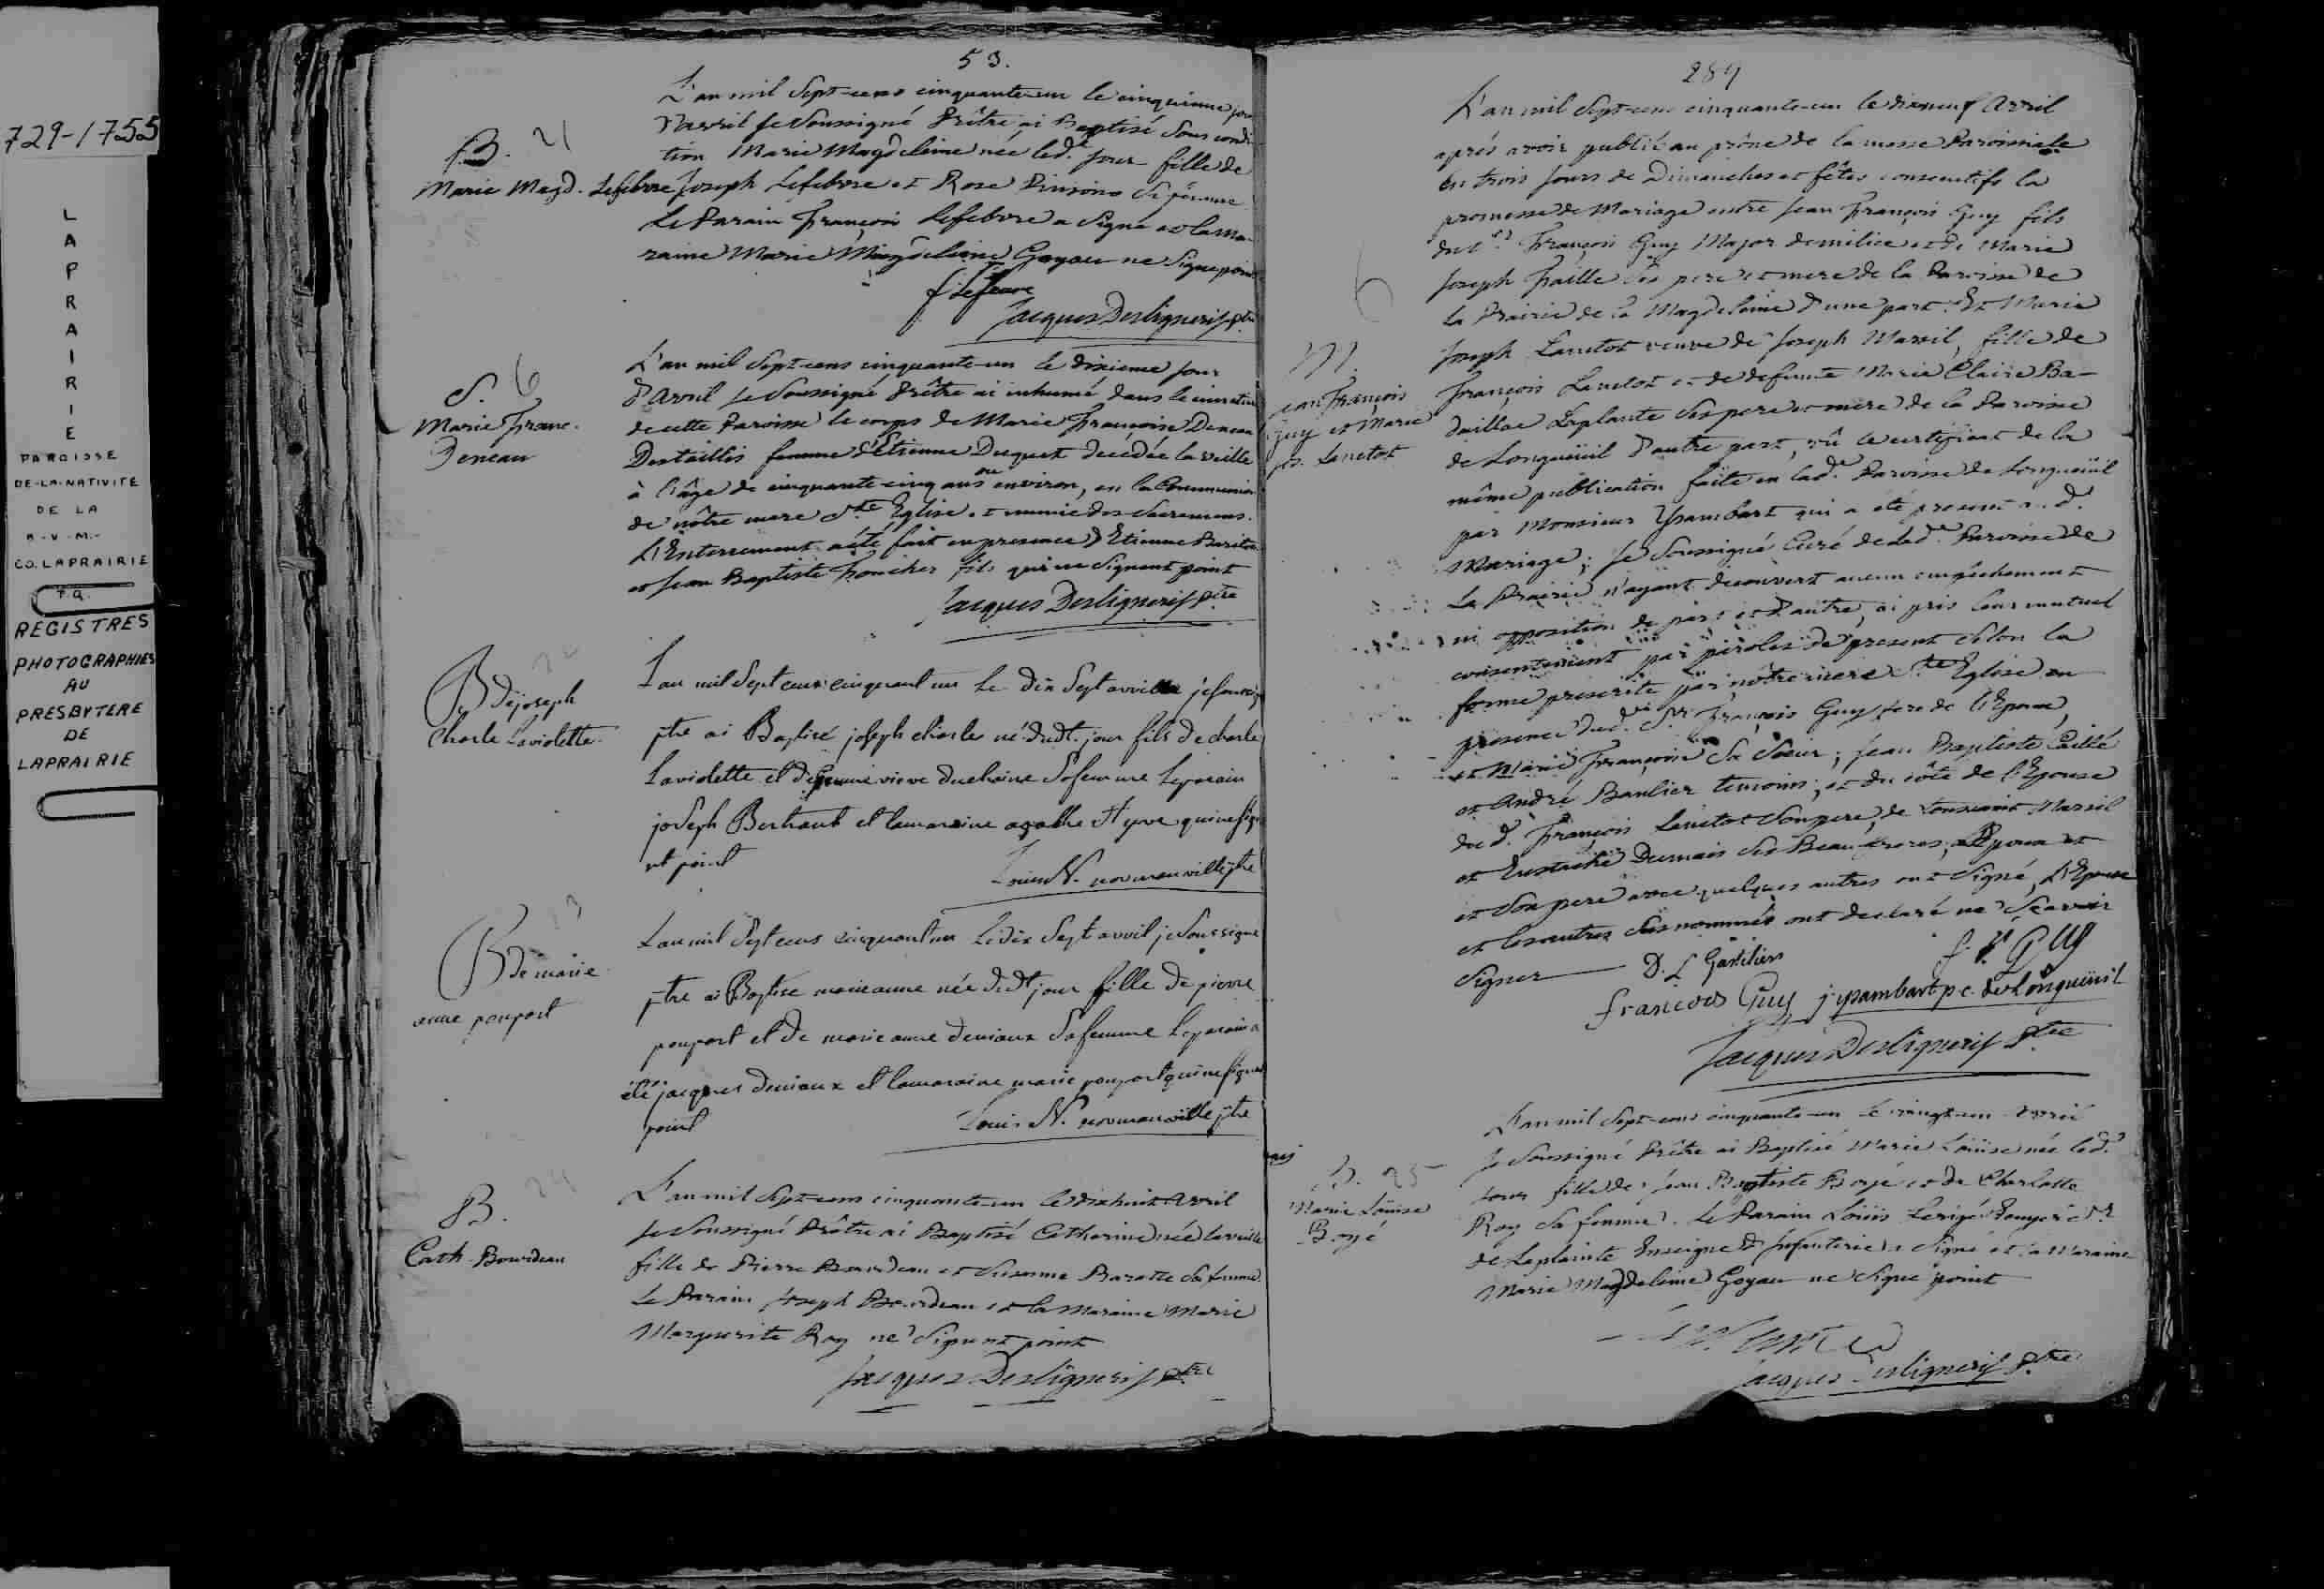 729-1755
LAPRAIRIE
PAROISSE
DE-LA-NATIVITE
DE LA
B-V-M.-
CO. LAPRAIRIE
P.Q.
REGISTRES
PHOTOGRAPHIES
AU
PRESBYTERE
DE
LAPRAIRIE
53.
B. 21
Marie Magd. Lefebvre
L'an mil Sept-cens cinquante-un le cinquieme jour
d'avril je Soussigné Prêtre ai Baptisé Sous condi
tion Marie Magdeleine née led.t jour fille de
Joseph Lefebvre et Rose Pinsono Sa femme
Le Parain François Lefebvre a Signé et la ma-
raine Marie Magdeleine Goyau ne Signe point
f Lefeavre
Jacques Deslignerif p.tre
S. 6
Marie Franc.
Deneau
L'an mil Sept-cens cinquante-un le dixieme jour
d'Avril je Soussigné Prêtre ai inhumé dans le cimetiere
de cette Paroisse le corps de Marie Françoise Deneau
Destaillis femme d'Etienne Duquet decédée la veille
à l'âge de cinquante-cinq ans ou environ, en la Communion
de nôtre mere S.te Eglise et munie des Sacremens.
L'Enterrement a été fait en presence d'Etienne
et Jean Baptiste fils qui ne Signent point
Jacques Deslignerif p.tre
B de joseph
Charle Laviolette
Lan mil Sept cens cinquant un Le dix Sept avril je soussig
ptre ai Baptisé joseph charle né dudt. jour fils de charle
Laviolette et de Genevieve duchaine Safemme Leparain
joseph Bertrant et lamaraine agathe qui ne sign
nt point
Louis N. normanville ptre
B de marie
anne poupart
Lan mil Sept cens cinquant un Le dix Sept avril je Soussigné
ptre ai Baptisé marie anne née dudt jour fille de pierre
poupart et de marie anne deniaux Safemme Leparain a
été jacques deniaux et lamaraine marie poupart qui ne signent
point
Louis N. normanville ptre
B. 24
Cath. Bourdeau
L'an mil Sept-cens cinquante-un le dixhuit Avril
je Soussigné Prêtre ai Baptisé Catherine née la veille
fille de Pierre Bourdeau et Susanne Barette Sa femme.
Le Parain Joseph Bourdeau et la Maraine Marie
Marguerite Roy ne Signent point
Jacques Deslignerif p.tre
289
6
M.
Jean François
Guy et Marie
jos. Lanctot
L'an mil Sept-cens cinquante-un le dixneuf Avril
après avoir publié au prône de la messe Paroissiale
en trois jours de Dimanches et fêtes consecutifs la
promesse de Mariage entre Jean François Guy fils
du S.r François Guy Major de milice et de Marie
Joseph Traille Ses pere et mere de la Paroisse de
La Prairie de la Magdeleine d'une part. Et Marie
Joseph Lanctot veuve de Joseph Marsil, fille de
François Lanctot et de defunte Marie Claire Ba-
daillac Laplante Ses pere et mere de la Paroisse
de Longueüil d'autre part, vû le certificat de la
même publication faite en lad.e Paroisse de Longueüil
par Monsieur Ysambart qui a été present a.d.
Mariage; je Soussigné Curé de lad.e Paroisse de
La Prairie n'ayant decouvert aucun empêchement
ni opposition de part et d'autre, ai pris leur mutuel
consentement par paroles de present selon la
forme prescrite par nôtre mere S.te Eglise en
presence dud. S.r François Guy pere de l'Epoux,
et Marie Françoise Sa Soeur; Jean Baptiste Caillé
et André Banlier temoins; et du côté de l'Epouse
du d. François Lanctot Son pere, de Toussaint Marsil
et Eustache Dumais Ses Beau freres; L'Epoux et
et Son pere avec quelques autres ont Signé, L'Epouse
et les autres Susnommés ont declaré ne Sçavoir
Signer
D. L Gatiliers
f. Guy
francois Guy
j. ysambart p.c. de Longueüil
Jacques Deslignerif p.tre
B. 25
Marie Loüise
Boyé
L'an mil Sept-cens cinquante-un le vingt-un Avril
je Soussigné Prêtre ai Baptisé Marie Loüise née led.t
jour fille de Jean Baptiste Boyé et de Charlotte
Roy Sa femme. Le Parain Loüis Lerigé Ecuyer S.r
de Laplainte Enseigne d'Infanterie a Signé et la Maraine
Marie Magdeleine Goyau ne Signe point
Jacques Deslignerif p.tre